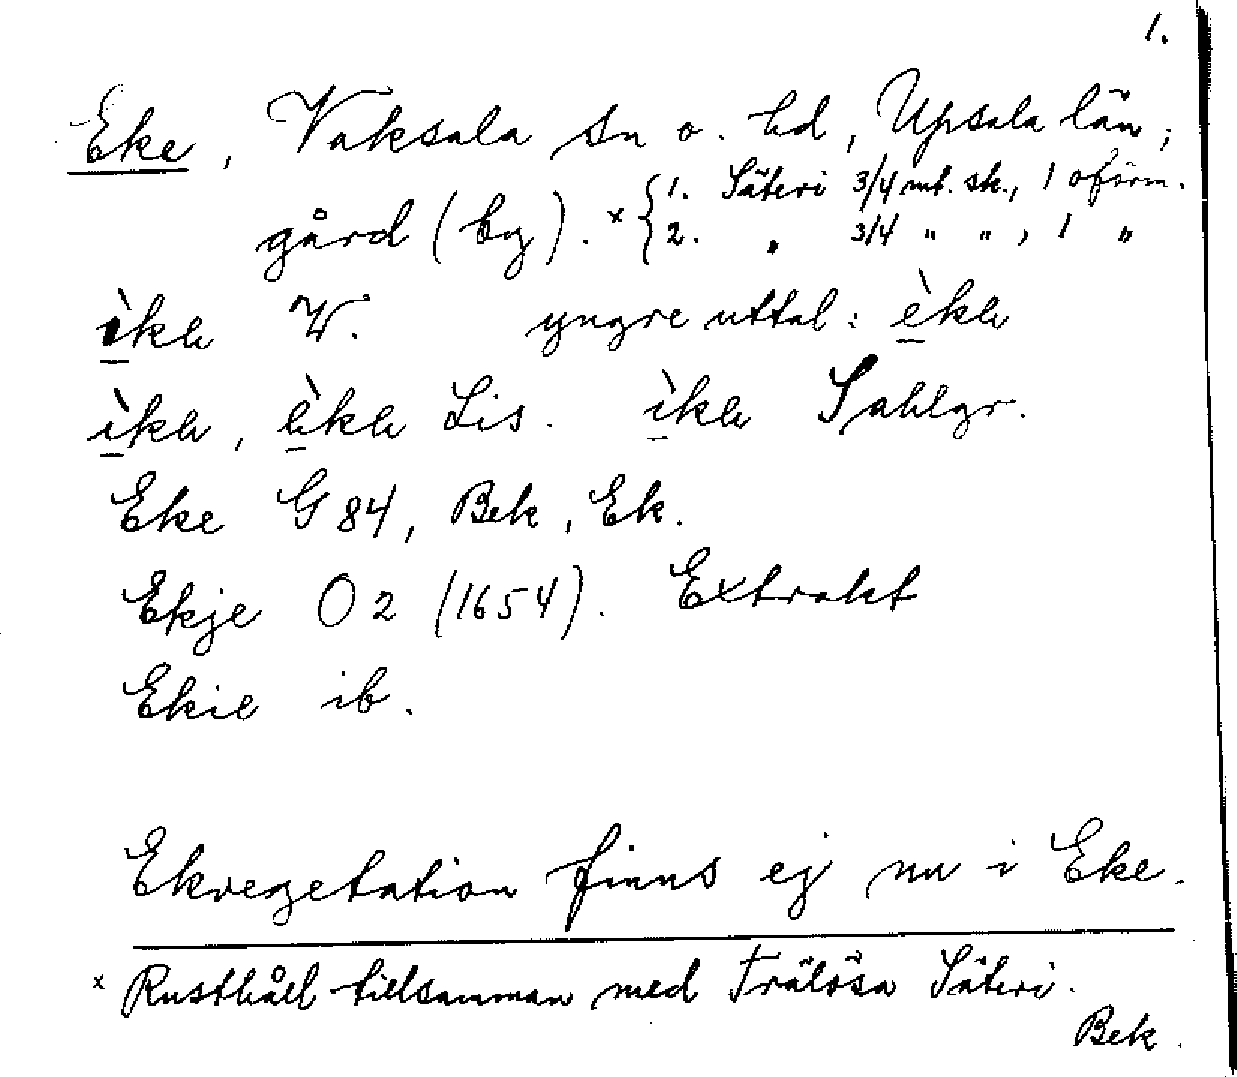 1.
Eke, Vaksala sn o. hd, Upsala län;
gård (by). x { 1. Säteri 3/4 mt. sk., 1 oförm.
2. " 3/4 " ", 1 "
ı̀kɐ W. yngre uttal: èkɐ
ı̀kɐ, èkɐ Lis. ı̀kɐ Sahlgr.
Eke G 84, Bek, Ek.
Ekje O 2 (1654). Extrakt
Ekie ib.
Ekvegetation finns ej nu i Eke.
x Rusthåll tillsamman med Trälösa Säteri.
Bek.